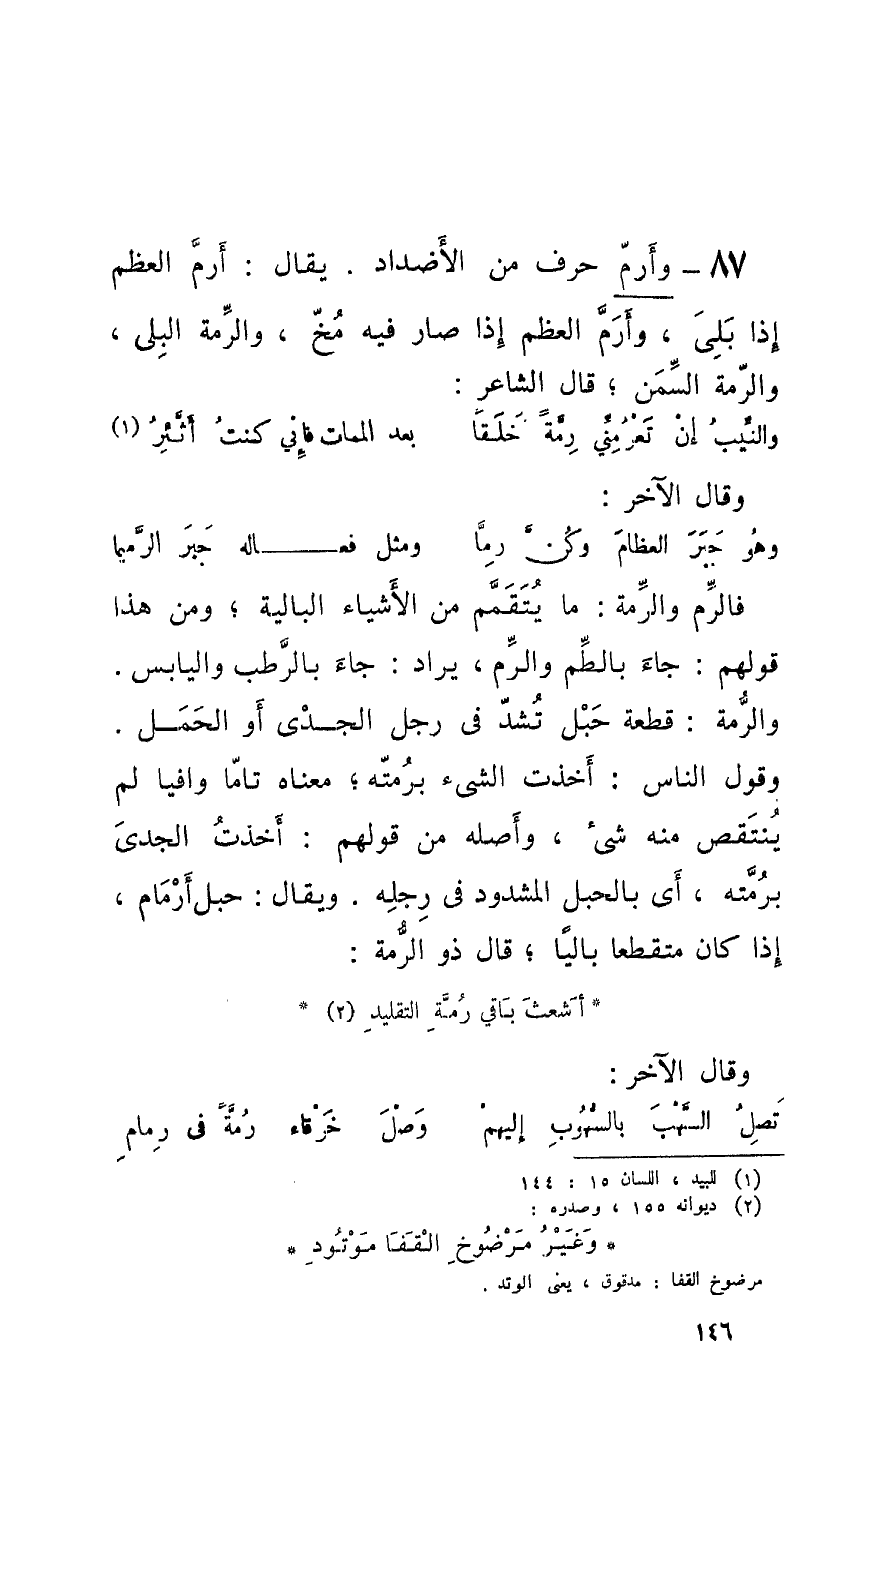 ٨٧ – وأَرمّ حرف من الأَضداد . يقال : أَرمَّ العظم
إِذا بَلِىَ ، وأَرَمَّ العظم إِذا صار فيه مُخّ ، والرِّمة البِلى ،
والرِّمة السِّمَن ؛ قال الشاعر :
والنِّيبُ إنْ تَعْرُمِنِّي رِمَّةً خَلَقاً بعد الممات فإِني كنتُ أَثَّئِرُ (١)
وقال الآخر :
وهُو جَبَرَ العظامَ وكُنَّ رِمًّا ومثل فعـــــاله جَبَرَ الرَّميما
فالرِّم والرِّمة : ما يُتَقَمَّم من الأَشياء البالية ؛ ومن هذا
قولهم : جاءَ بالطِّم والرِّم ، يراد : جاءَ بالرَّطب واليابس .
والرُّمة : قطعة حَبْل تُشدّ فى رجل الجــدْى أَو الحَمَـــل .
وقول الناس : أَخذت الشىء برُمتّه ؛ معناه تامّا وافيا لم
يُنتَقَص منه شىءٌ ، وأَصله من قولهم : أَخذتُ الجدىَ
برُمَّته ، أَى بالحبل المشدود فى رِجلِه . ويقال : حبل أَرْمَام ،
إِذا كان متقطعا باليًا ؛ قال ذو الرُّمة :
* أَشعثَ بَاقي رُمَّةِ التقليدِ (٢) *
وقال الآخر :
تَصِلُ السَّهْبَ بالسُّهُوبِ إليهمْ وَصْلَ خَرْقاء رُمَّةً فى رِمامِ
(١) للبيد ، اللسان ١٥ : ١٤٤
(٢) ديوانه ١٥٥ ، وصدره :
* وَغَيْرُ مَرْضُوخِ الْقَفَا مَوْتُودِ *
مرضوخ القفا : مدقوق ، يعنى الوتد .
١٤٦